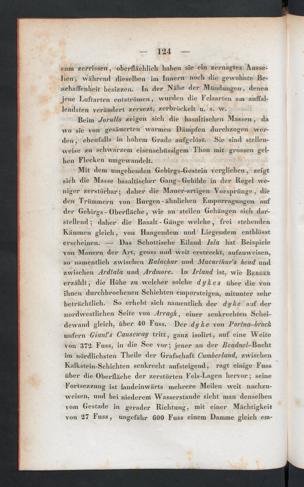 — 124 —
sam zerrissen, oberflächlich haben sie ein zernagtes Ausse-
hen, während dieselben im Innern noch die gewohnte Be-
schaffenheit besizzen. In der Nähe der Mündungen, denen
jene Luftarten entströmen, wurden die Felsarten am auffal-
lendsten verändert zersezt, zerbröckelt u. s. w.
Beim Jorullo zeigen sich die basaltischen Massen, da
wo sie von gesäuerten warmen Dämpfen durchzogen wer-
den, ebenfalls in hohem Grade aufgelöst. Sie sind stellen-
weise zu schwärzem eisenschüssigem Thon mit grossen gel-
ben Flecken umgewandelt.
Mit dem umgebenden Gebirgs-Gestein verglichen, zeigt
sich die Masse basaltischer Gang-Gebilde in der Regel we-
niger zerstörbar; daher die Mauer-artigen Vorsprünge, die
den Trümmern von Burgen-ähnlichen Emporragungen auf
der Gebirgs-Oberfläche, wie an steilen Gehängen sich dar-
stellend; daher die Basalt-Gänge welche, frei stehenden
Kämmen gleich, von Hangendem und Liegendem entblösst
erscheinen. — Das Schottische Eiland Isla hat Beispiele
von Mauern der Art, gross und weit erstreckt, aufzuweisen,
so namentlich zwischen Balachar und Macarthur's head und
zwischen Ardtala und Ardmore. In Irland ist, wie Berger
erzählt, die Höhe zu welcher solche dykes über die von
ihnen durchbrochenen Schichten emporsteigen, mitunter sehr
beträchtlich. So erhebt sich namentlich der dyke auf der
nordwestlichen Seite von Arragh, einer senkrechten Schei-
dewand gleich, über 40 Fuss. Der dyke von Portna-bruck
unfern Giant's Causeway tritt, ganz isolirt, auf eine Weite
von 372 Fuss, in die See vor; jener an der Beadnel-Bucht
im nördlichsten Theile der Grafschaft Cumberland, zwischen
Kalkstein-Schichten senkrecht aufsteigend, ragt einige Fuss
über die Oberfläche der zerstörten Fels-Lagen hervor; seine
Fortsezzung ist landeinwärts mehrere Meilen weit nachzu-
weisen, und bei niederem Wasserstande sieht man denselben
vom Gestade in gerader Richtung, mit einer Mächtigkeit
von 27 Fuss, ungefähr 600 Fuss einem Damme gleich em-